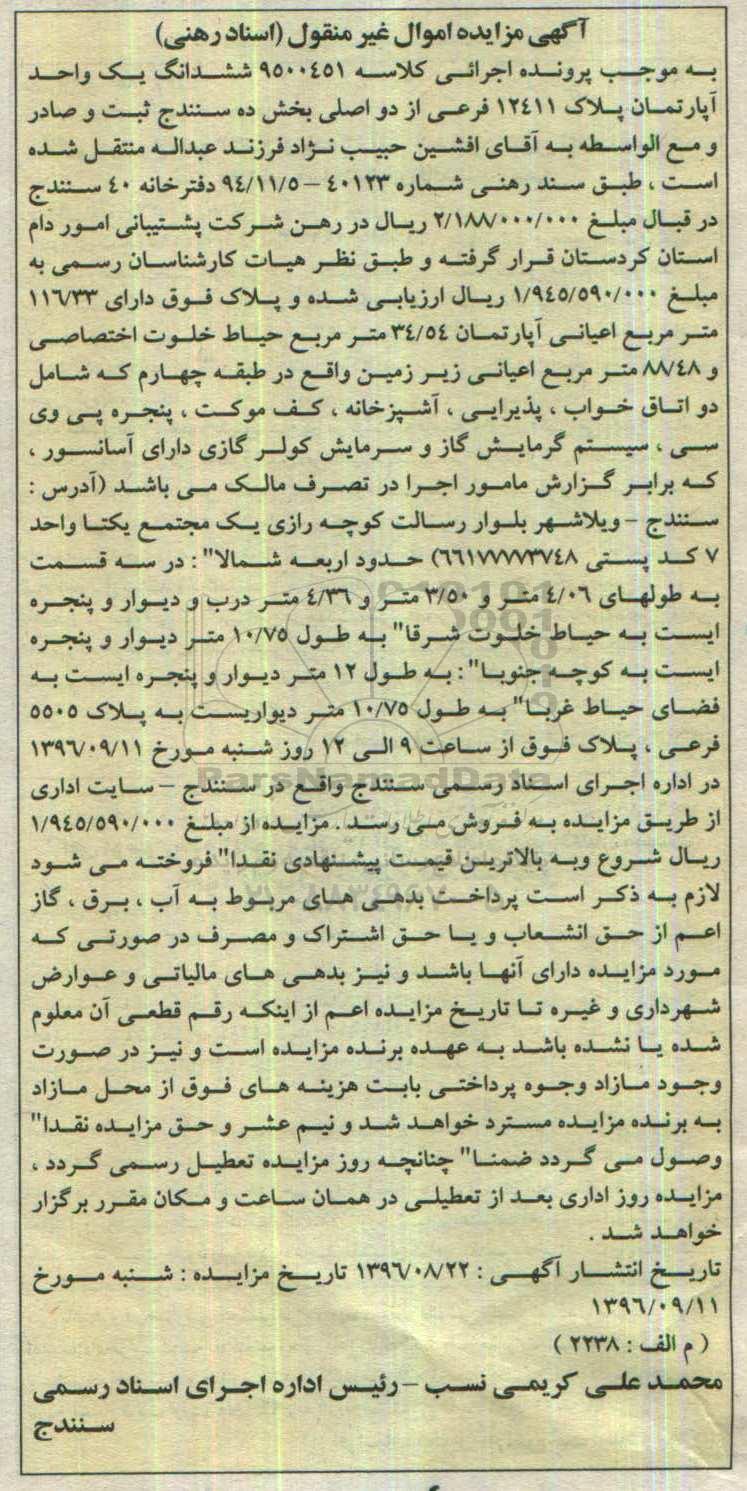 آگهی مزایده اموال غیر منقول (اسناد رهنی)
به موجب پرونده اجرائی کلاسه ۹۵۰۰۴۵۱ ششدانگ یک واحد
آپارتمان پلاک ۱۲۴۱۱ فرعی از دو اصلی بخش ده سنندج ثبت و صادر
و مع الواسطه به آقای افشین حبیب نژاد فرزند عبداله منتقل شده
است ، طبق سند رهنی شماره ۴۰۱۲۳ – ۹۴/۱۱/۵ دفترخانه ۴۰ سنندج
در قبال مبلغ ۲/۱۸۸/۰۰۰/۰۰۰ ریال در رهن شرکت پشتیبانی امور دام
استان کردستان قرار گرفته و طبق نظر هیات کارشناسان رسمی به
مبلغ ۱/۹۴۵/۵۹۰/۰۰۰ ریال ارزیابی شده و پلاک فوق دارای ۱۱۶/۳۳
متر مربع اعیانی آپارتمان ۳۴/۵۴ متر مربع حیاط خلوت اختصاصی
و ۸۸/۴۸ متر مربع اعیانی زیر زمین واقع در طبقه چهارم که شامل
دو اتاق خواب ، پذیرایی ، آشپزخانه ، کف موکت ، پنجره پی وی
سی ، سیستم گرمایش گاز و سرمایش کولر گازی دارای آسانسور ،
که برابر گزارش مامور اجرا در تصرف مالک می باشد (آدرس :
سنندج – ویلاشهر بلوار رسالت کوچه رازی یک مجتمع یکتا واحد
۷ کد پستی ۶۶۱۷۷۷۷۳۷۴۸) حدود اربعه شمالا" : در سه قسمت
به طولهای ۴/۰۶ متر و ۳/۵۰ متر و ۴/۳۶ متر درب و دیوار و پنجره
ایست به حیاط خلوت شرقا" به طول ۱۰/۷۵ متر دیوار و پنجره
ایست به کوچه جنوبا" : به طول ۱۲ متر دیوار و پنجره ایست به
فضای حیاط غربا" به طول ۱۰/۷۵ متر دیواریست به پلاک ۵۵۰۵
فرعی ، پلاک فوق از ساعت ۹ الی ۱۲ روز شنبه مورخ ۱۳۹۶/۰۹/۱۱
در اداره اجرای اسناد رسمی سنندج واقع در سنندج – سایت اداری
از طریق مزایده به فروش می رسد . مزایده از مبلغ ۱/۹۴۵/۵۹۰/۰۰۰
ریال شروع وبه بالاترین قیمت پیشنهادی نقدا" فروخته می شود
لازم به ذکر است پرداخت بدهی های مربوط به آب ، برق ، گاز
اعم از حق انشعاب و یا حق اشتراک و مصرف در صورتی که
مورد مزایده دارای آنها باشد و نیز بدهی های مالیاتی و عوارض
شهرداری و غیره تا تاریخ مزایده اعم از اینکه رقم قطعی آن معلوم
شده یا نشده باشد به عهده برنده مزایده است و نیز در صورت
وجود مازاد وجوه پرداختی بابت هزینه های فوق از محل مازاد
به برنده مزایده مسترد خواهد شد و نیم عشر و حق مزایده نقدا"
وصول می گردد ضمنا" چنانچه روز مزایده تعطیل رسمی گردد ،
مزایده روز اداری بعد از تعطیلی در همان ساعت و مکان مقرر برگزار
خواهد شد .
تاریخ انتشار آگهی : ۱۳۹۶/۰۸/۲۲ تاریخ مزایده : شنبه مورخ
۱۳۹۶/۰۹/۱۱
( م الف : ۲۲۳۸ )
محمد علی کریمی نسب – رئیس اداره اجرای اسناد رسمی
سنندج
ParsNamadData